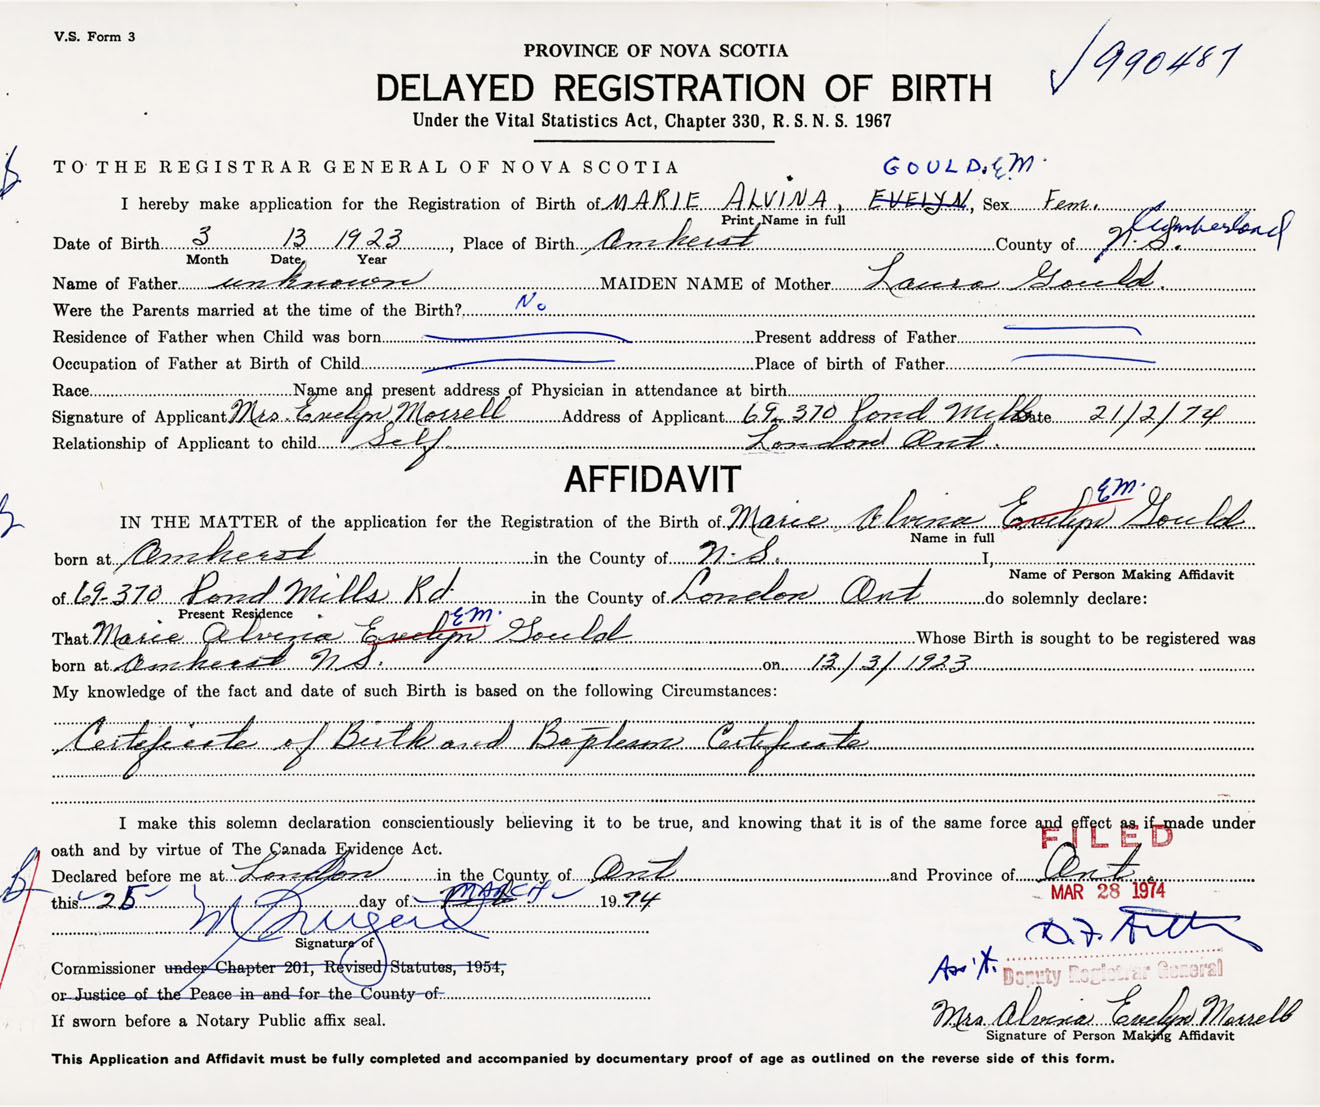 V.S. Form 3
PROVINCE OF NOVA SCOTIA
√990487
DELAYED REGISTRATION OF BIRTH
Under the Vital Statistics Act, Chapter 330, R. S. N. S. 1967
TO THE REGISTRAR GENERAL OF NOVA SCOTIA GOULD. EM.
I hereby make application for the Registration of Birth of MARIE ALVINA, EVELYN, Sex Fem.
Print Name in full
Date of Birth 3 13 1923, Place of Birth Amherst County of N.S. Cumberland
Month Date Year
Name of Father unknown MAIDEN NAME of Mother Laura Gould.
Were the Parents married at the time of the Birth? No
Residence of Father when Child was born Present address of Father
Occupation of Father at Birth of Child Place of birth of Father
Race Name and present address of Physician in attendance at birth
Signature of Applicant Mrs. Evelyn Morrell Address of Applicant 69-370 Pond Mills Date 21/2/74
Relationship of Applicant to child Self London Ont.
AFFIDAVIT
EM.
IN THE MATTER of the application for the Registration of the Birth of Marie Alvina Evelyn Gould
Name in full
born at Amherst in the County of N.S. I,
Name of Person Making Affidavit
of 69-370 Pond Mills Rd in the County of London Ont do solemnly declare:
Present Residence
EM.
That Marie Alvina Evelyn Gould Whose Birth is sought to be registered was
born at Amherst NS. on 13/3/1923
My knowledge of the fact and date of such Birth is based on the following Circumstances:
Certificate of Birth and Baptism Certificate
I make this solemn declaration conscientiously believing it to be true, and knowing that it is of the same force and effect as if made under
oath and by virtue of The Canada Evidence Act.
FILED
Declared before me at London in the County of Ont and Province of Ont.
MAR 28 1974
this 25 day of MARCH 1974
Signature of
Commissioner under Chapter 201, Revised Statutes, 1954,
Ass't. Deputy Registrar General
or Justice of the Peace in and for the County of
If sworn before a Notary Public affix seal.
Mrs Alvina Evelyn Morrell
Signature of Person Making Affidavit
This Application and Affidavit must be fully completed and accompanied by documentary proof of age as outlined on the reverse side of this form.